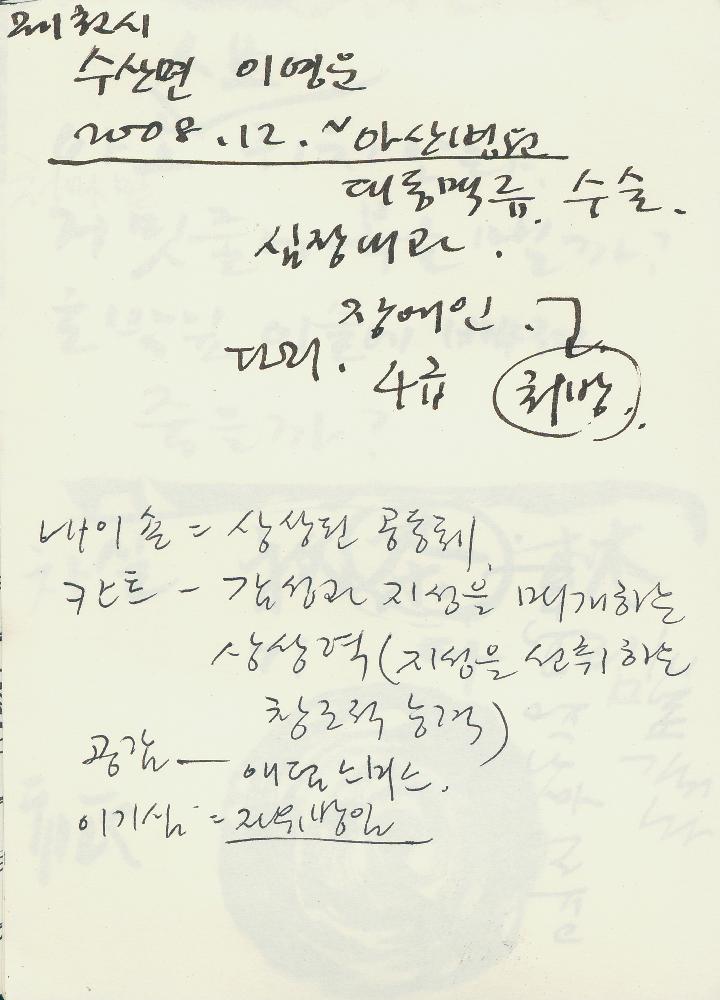 제천시
수산면 이영운
2008.12.~아산병원
대동맥류. 수술.
심장내과.
장애인.
다리. 4급 취방.
네이숀 = 상상된 공동체
칸트 - 감성과 지성을 매개하는
상상력(지성을 선취하는
창조적 능력)
공감 — 애덤 스미스.
이기심 =